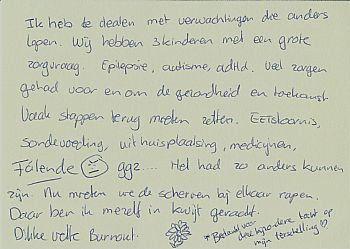 Ik heb te dealen met verwachtingen die anders
lopen. Wij hebben 3 kinderen met een grote
zorgvraag. Epilepsie, autisme, adhd. Veel zorgen
gehad voor en om de gezondheid en toekomst
Vaak stappen terug moeten zetten. Eetstoornis,
sondevoeding, uithuisplaatsing, medicijnen,
Falende ggz.... Het had zo anders kunnen
zijn. Nu moeten we de scherven bij elkaar rapen.
Daar ben ik mezelf in kwijt geraakt.
Dikke vette Burnout.
* Bedankt voor
deze bijzondere tocht op
mijn herstelling